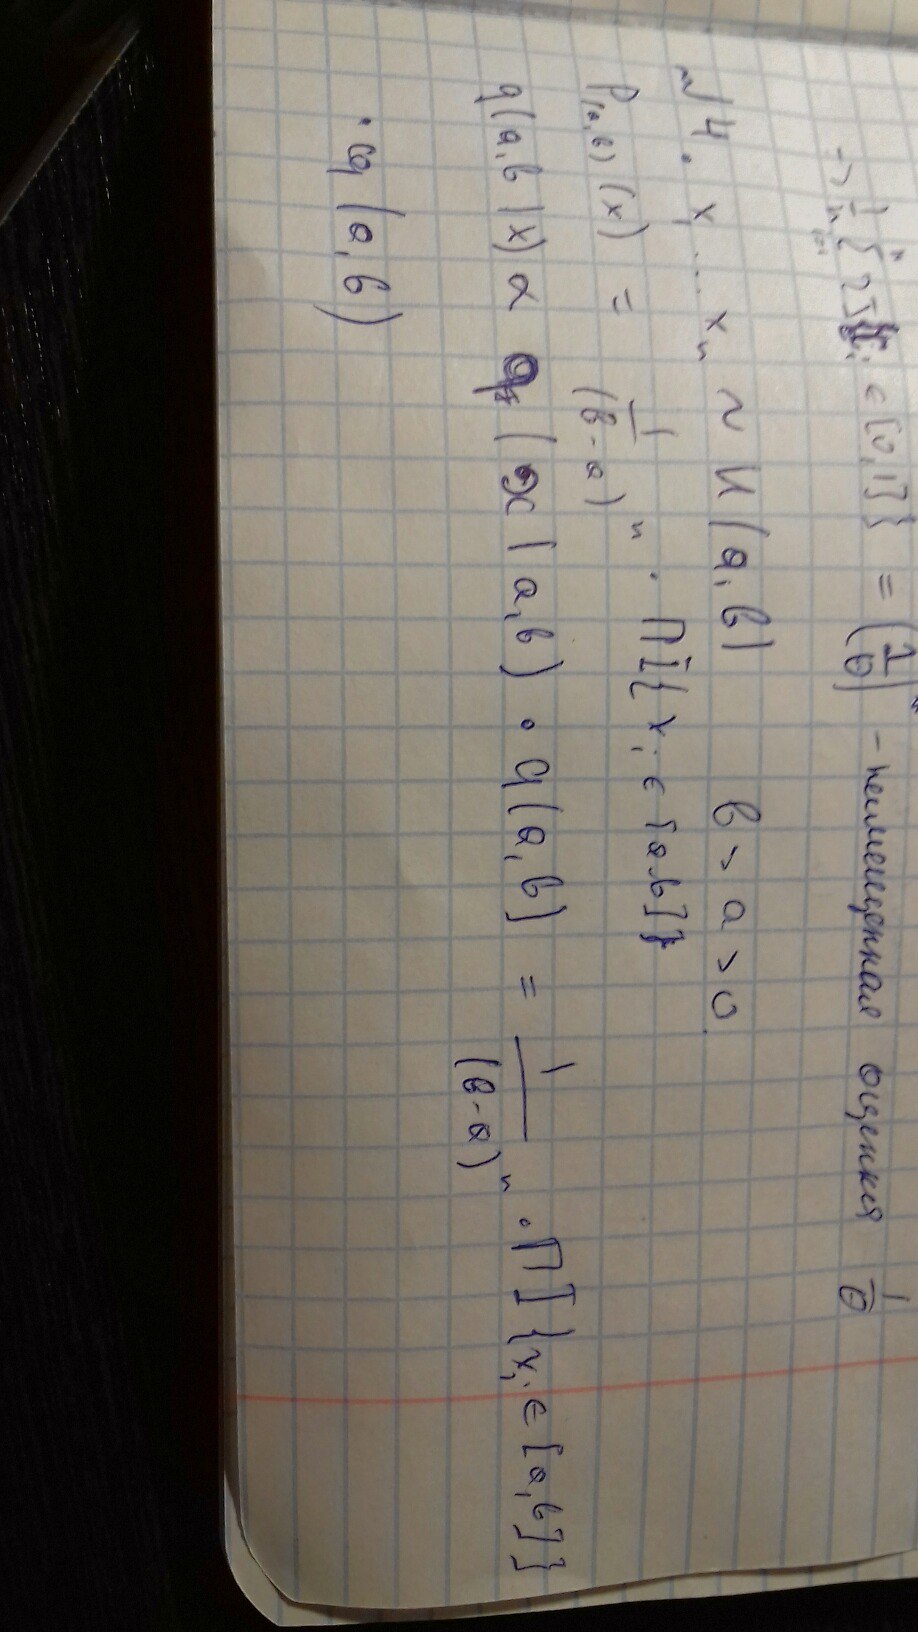 -> 1/n Σ_{i=1}^{n} { 2I{ x_i ∈ [0,1]} = (1/θ)^n - несмещенная оценка 1/θ
№4. x_1 ... x_n ~ U(a, b) b > a > 0.
P_{(a,b)} (x) = 1/(b-a)^n · П I{x_i ∈ [a,b]}
q(a,b|x) α q(x|a,b) · q(a,b) = 1/(b-a)^n · П I {x_i ∈ [a,b]}
· q(a,b)